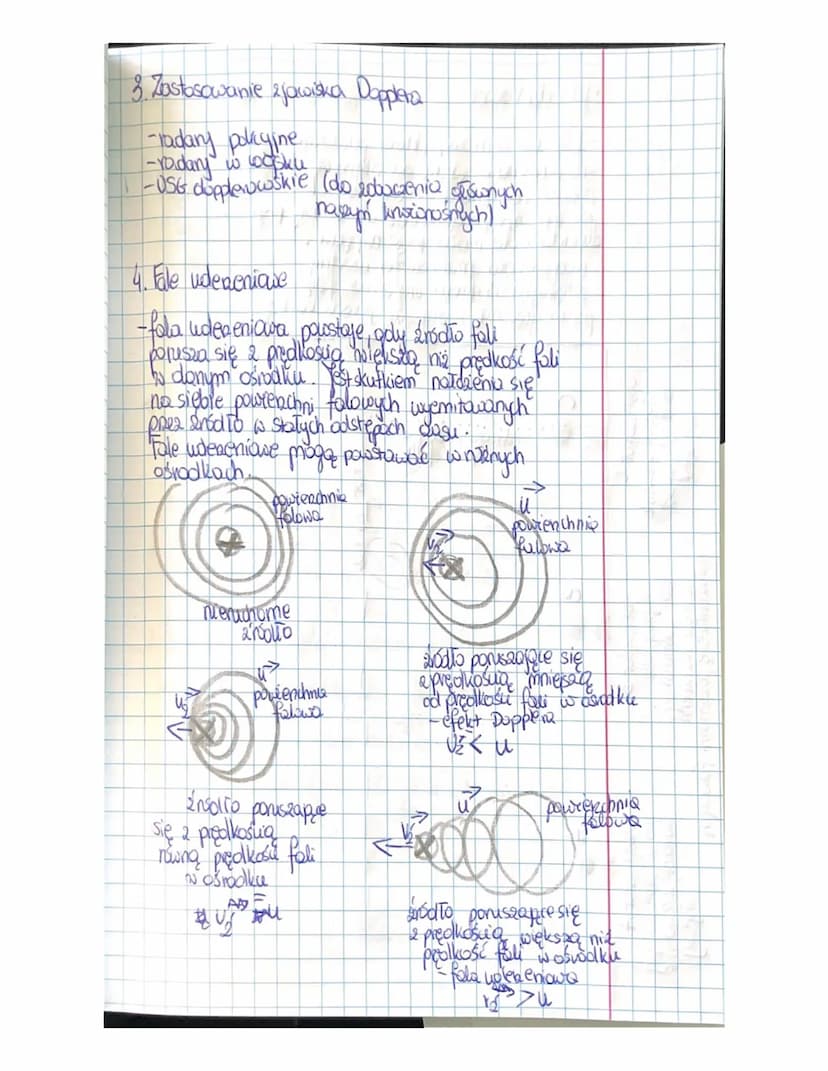 3. Zastosowanie zjawiska Dopplera
- radary policyjne
- radary w wojsku
- USG dopplerowskie (do zobaczenia głównych
naczyń krwionośnych)
4. Fale uderzeniowe
- fala uderzeniowa powstaje, gdy źródło fali
porusza się z prędkością większą niż prędkość fali
w danym ośrodku. Jest skutkiem nałożenia się
na siebie powierzchni falowych wyemitowanych
przez źródło w stałych odstępach czasu.
Fale uderzeniowe mogą powstawać w różnych
ośrodkach.
powierzchnia
falowa
nieruchome
źródło
u
powierzchnia
falowa
vź
źródło poruszające się
z prędkością mniejszą
od prędkości fali w ośrodku
- efekt Dopplera
vź < u
u
vź
powierzchnia
falowa
źródło poruszające
się z prędkością
równą prędkości fali
w ośrodku
vź = u
u
vź
powierzchnia
falowa
źródło poruszające się
z prędkością większą niż
prędkość fali w ośrodku
- fala uderzeniowa
vź > u